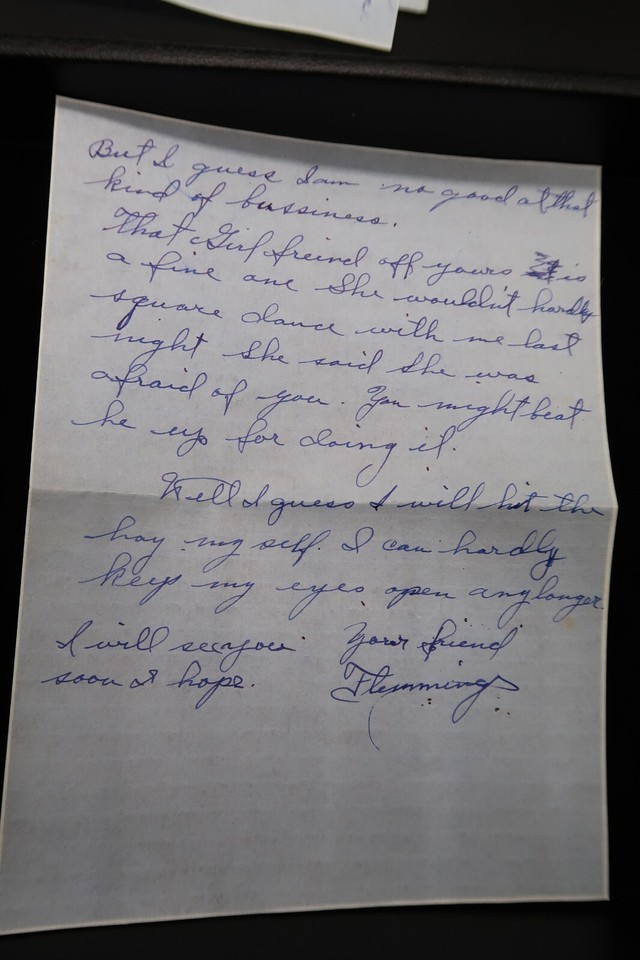 But I guess I am no good at that
kind of bussiness.
That Girl freind off yours is
a fine one She wouldn't hardly
square dance with me last
night She said She was
afraid of you. You might beat
he up for doing it.
Well I guess I will hit the
hay my self. I can hardly
keep my eyes open any longer.
I will see you
soon I hope.
Your friend
Flemming